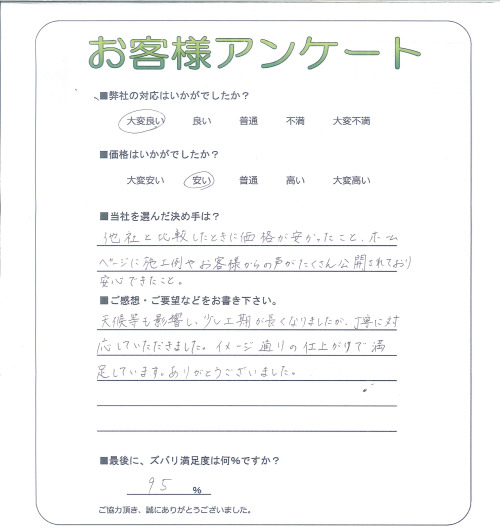 お客様アンケート
■弊社の対応はいかがでしたか？
大変良い 良い 普通 不満 大変不満
■価格はいかがでしたか？
大変安い 安い 普通 高い 大変高い
■当社を選んだ決め手は？
他社と比較したときに価格が安かったこと、ホーム
ページに施工例やお客様からの声がたくさん公開されており
安心できたこと。
■ご感想・ご要望などをお書き下さい。
天候等も影響し、少し工期が長くなりましたが、丁寧に対
応していただきました。イメージ通りの仕上がりで満
足しています。ありがとうございました。
■最後に、ズバリ満足度は何％ですか？
95 ％
ご協力頂き、誠にありがとうございました。